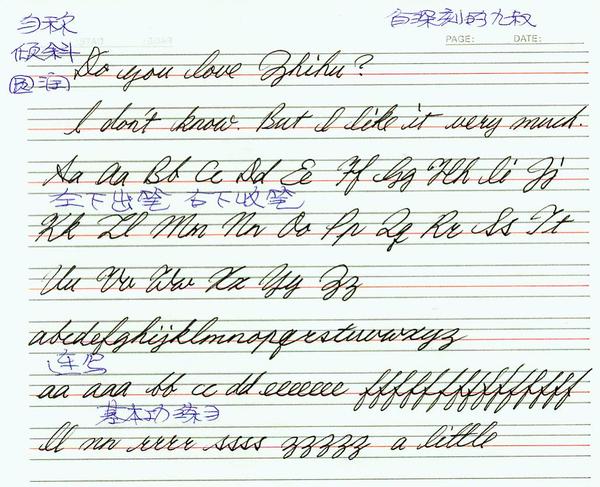 匀称
倾斜
圆润
刻的九叔
PAGE: DATE:
Do you love Zhihu?
I don't know. But I like it very much.
Aa Aa Bb Cc Dd Ee Ff Gg Hh Ii Jj
左下出笔 右下收笔
Kk Ll Mm Nn Oo Pp Qq Rr Ss Tt
Uu Vv Ww Xx Yy Zz
abcdefghijklmnopqrstuvwxyz
连写
aa aaa bb cc dd eeeeeee fffffffffffffff
基本功练习
ll nn rrrr ssss zzzzz a little